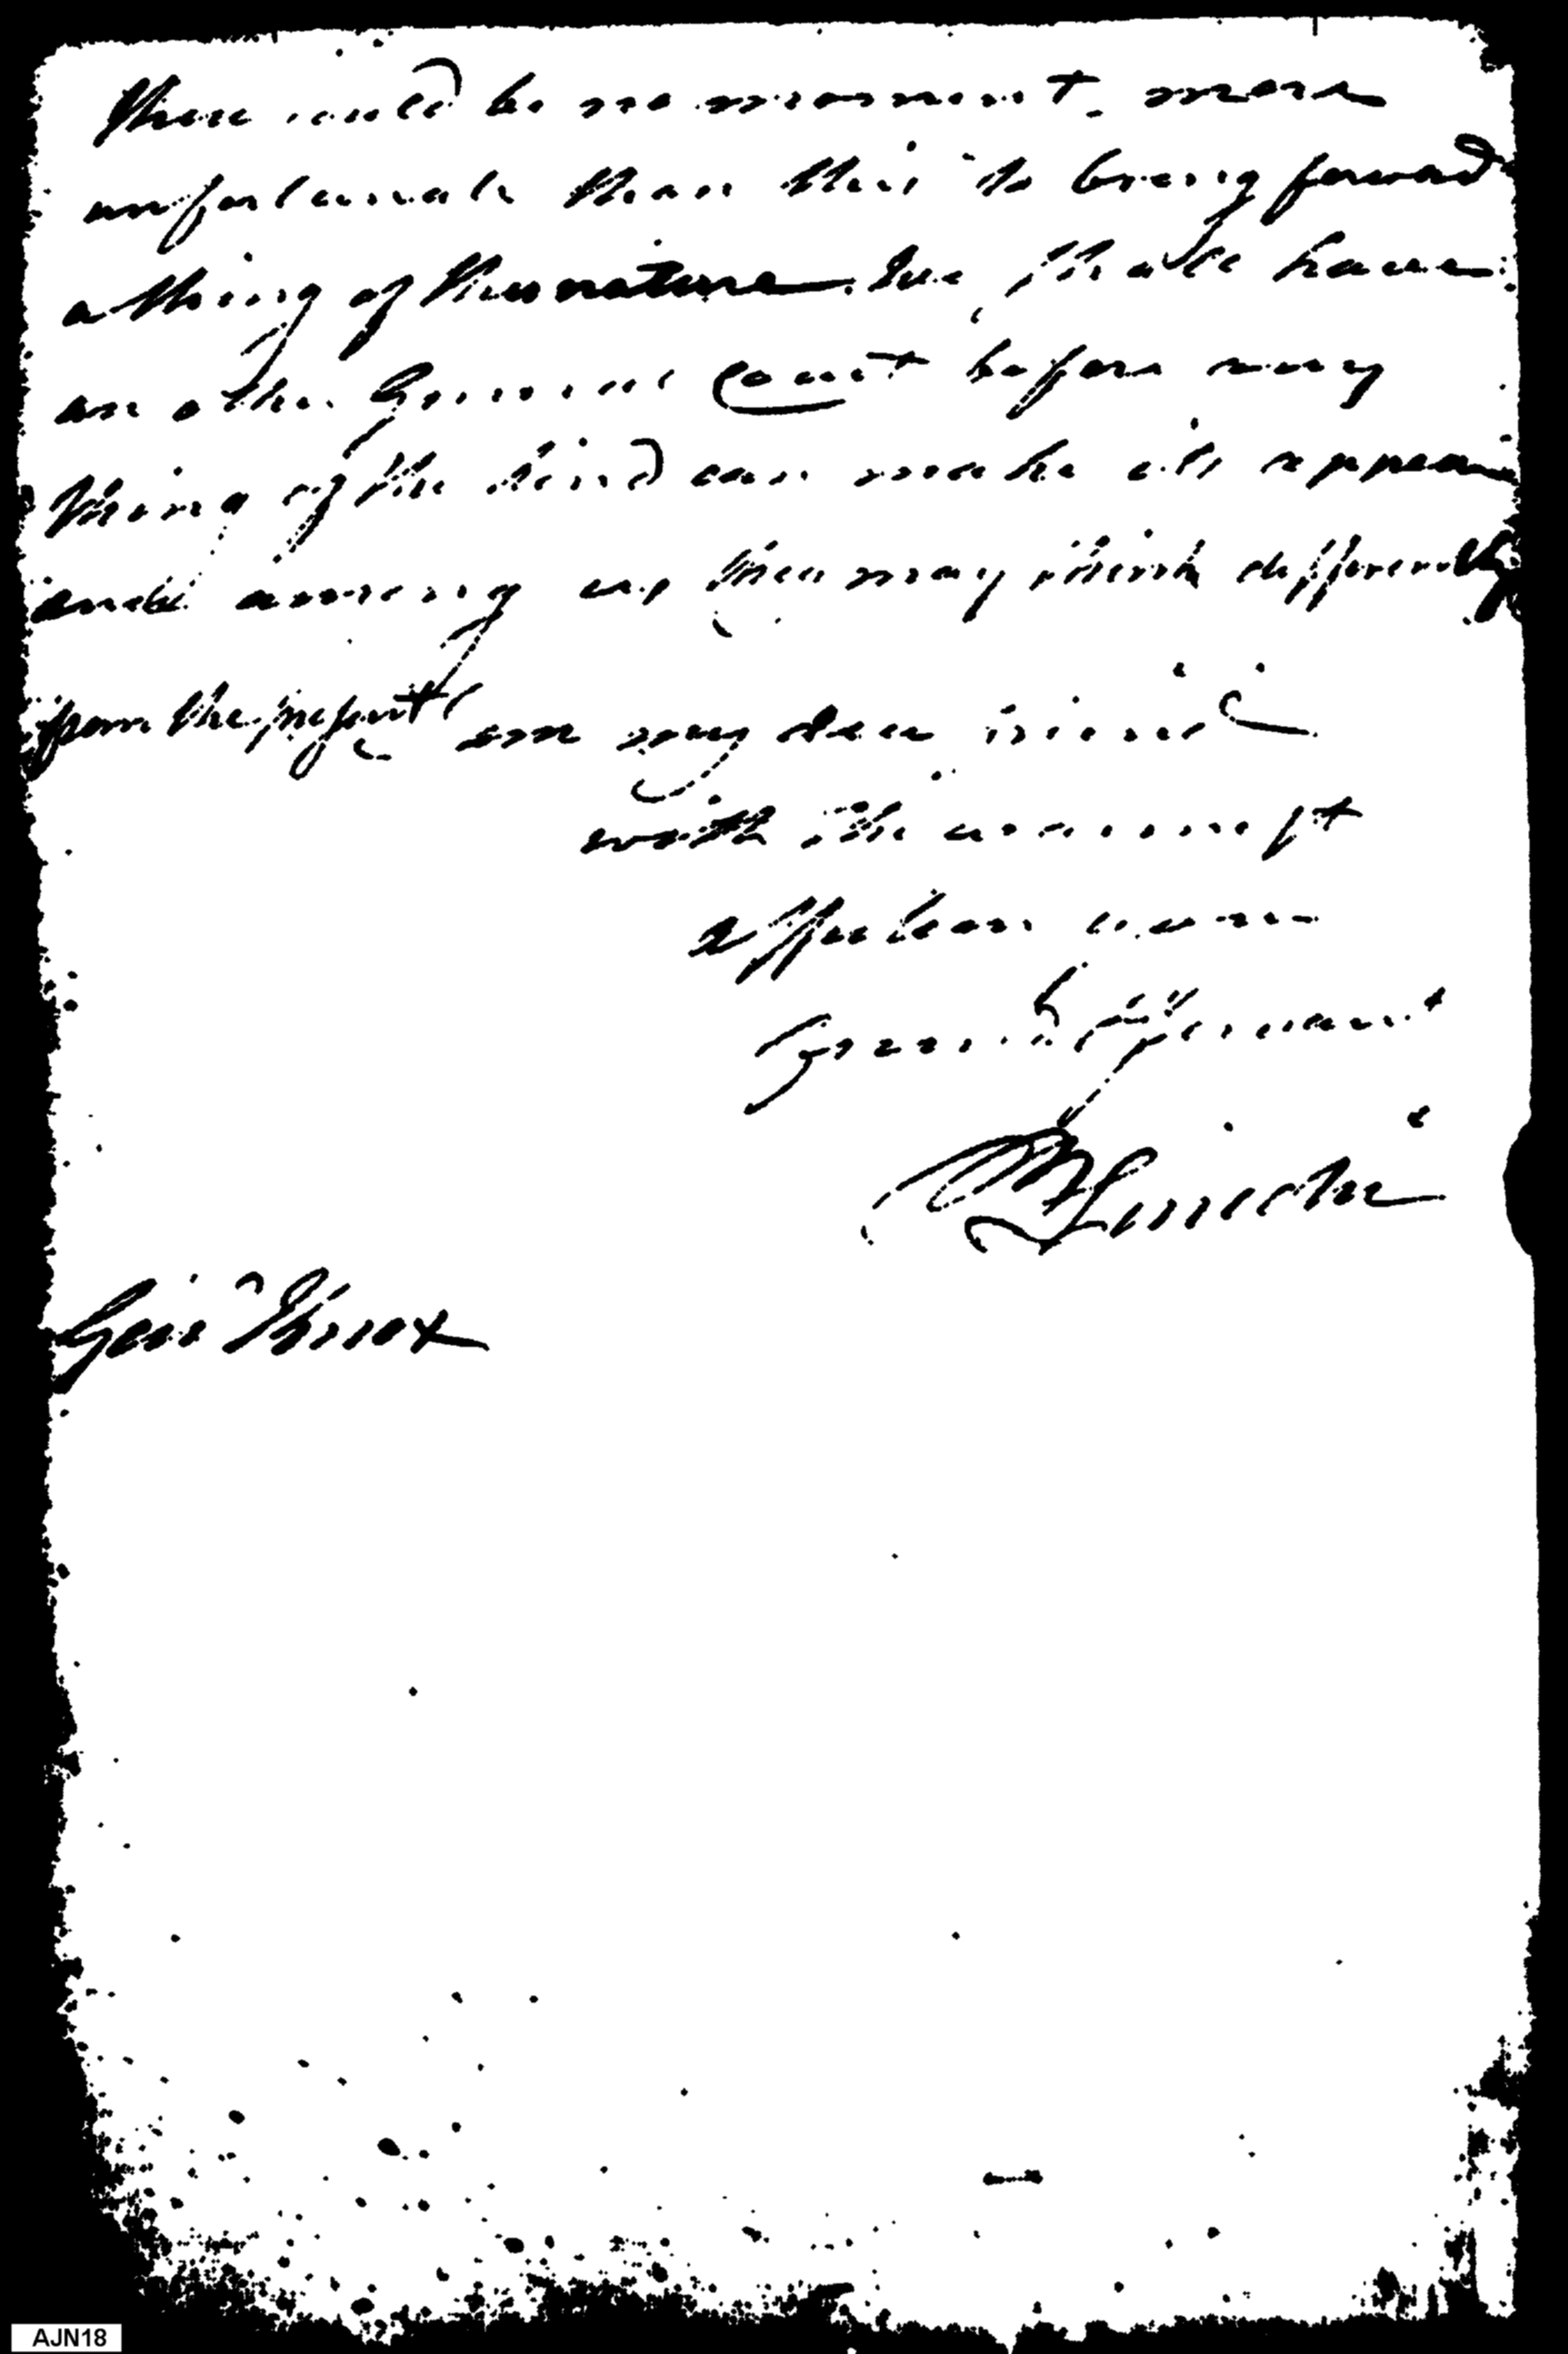 there could be no moment more
unfortunate than this to bring forward
a thing of this nature. We shall have
an other General Court before any
thing of the kind can make its appear
ance among us, they may think differently
from the present I am my dear friend
with the warmest
affection your
Humb Servant
B Lincoln
Gen Knox
AJN18